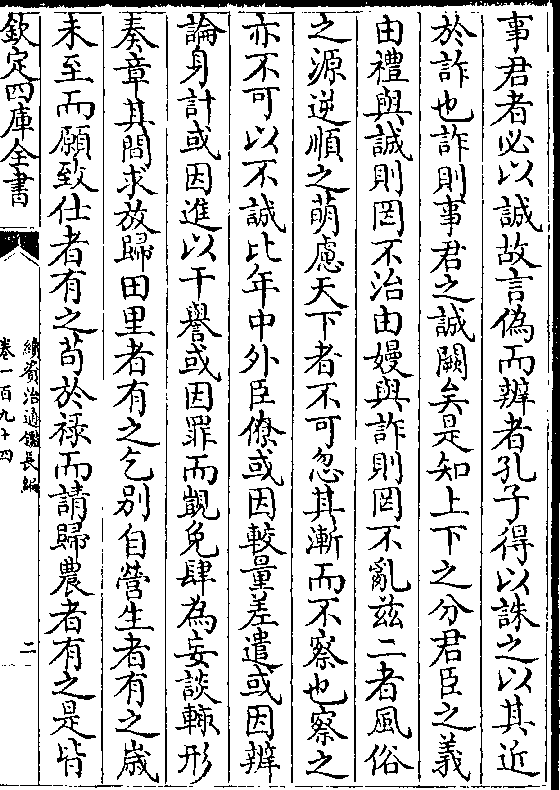 事君者必以誠故言偽而辨者孔子得以誅之以其近
於詐也詐則事君之誠闕矣是知上下之分君臣之義
由禮與誠則罔不治由嫚與詐則罔不亂兹二者風俗
之源逆順之萌慮天下者不可忽其漸而不察也察之
亦不可以不誠比年中外臣僚或因較量差遣或因辨
論身計或因進以干譽或因罪而覬免肆為妄談輙形
奏章其間求放歸田里者有之乞别自營生者有之嵗
未至而願致仕者有之苟於禄而請歸農者有之是皆
欽定四庫全書
續資治通鑑長編
卷一百九十四
二